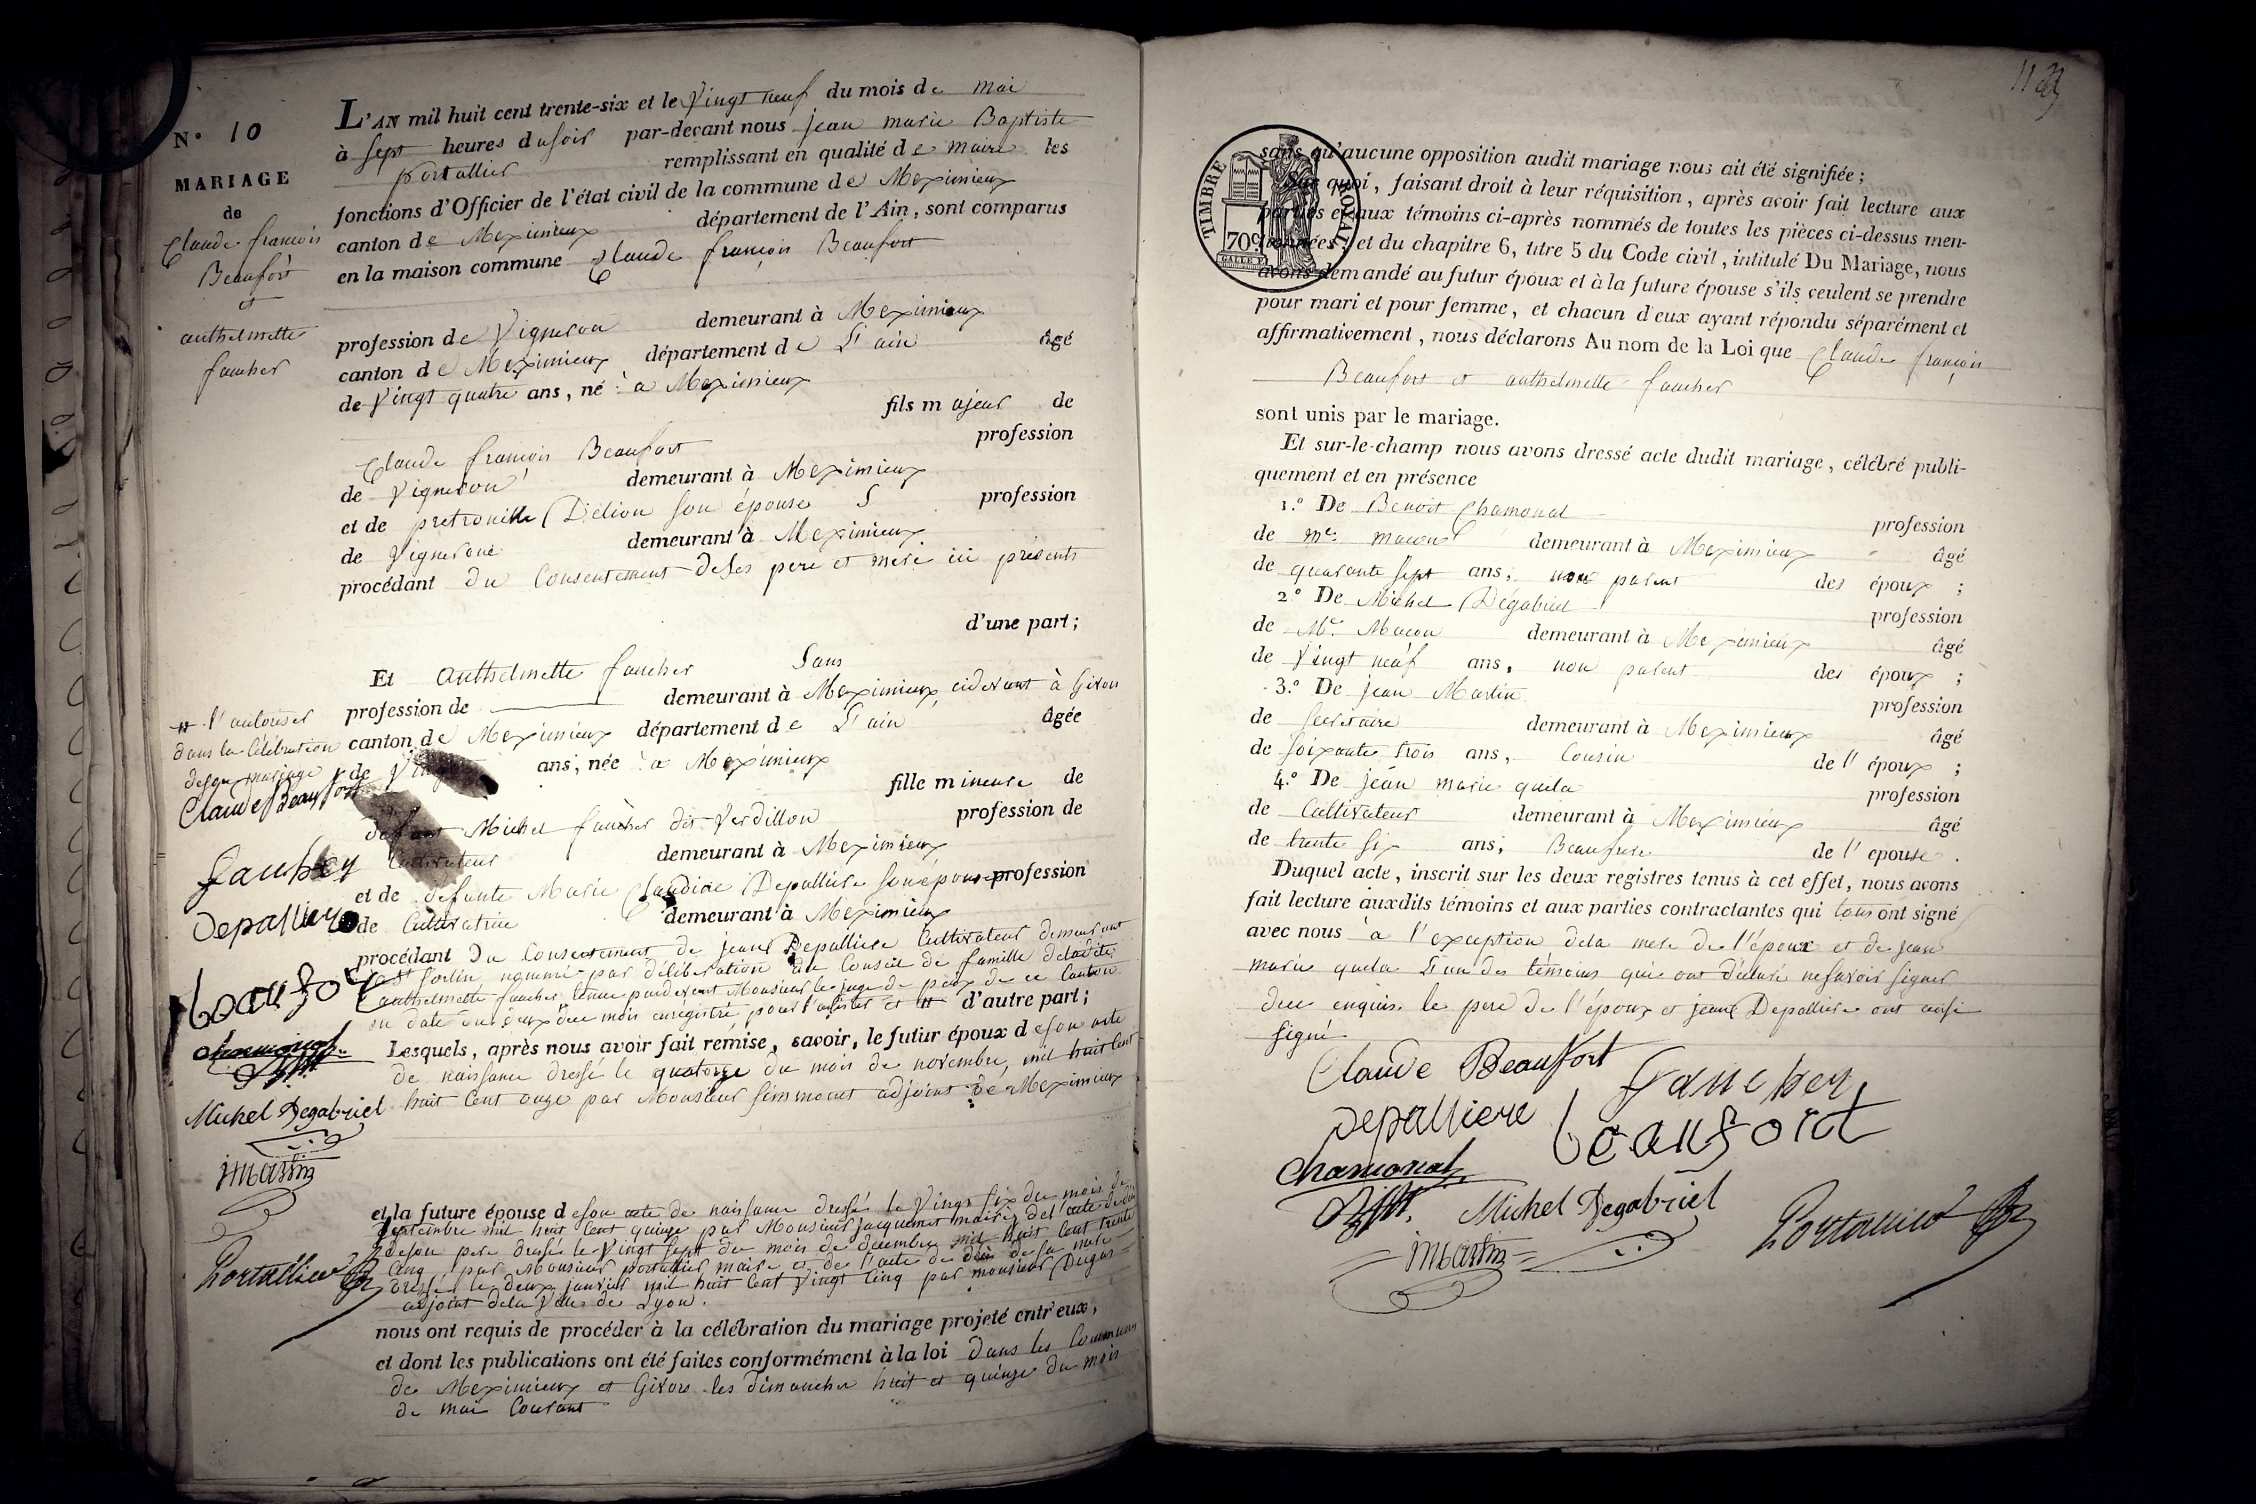 N° 10
MARIAGE
de
Claude françois
Beaufort
et
anthelmette
faucher
L'AN mil huit cent trente-six et le Vingt neuf du mois de mai
à sept heures du soir par-devant nous jean marie Baptiste
portallier remplissant en qualité de maire les
fonctions d'Officier de l'état civil de la commune de Meximieux
canton de Meximieux département de l'Ain, sont comparus
en la maison commune Claude françois Beaufort
profession de Vigneron demeurant à Meximieux
canton de Meximieux département de L'ain âgé
de Vingt quatre ans, né à Meximieux
fils majeur de
Claude françois Beaufort profession
de Vigneron demeurant à Meximieux
et de pretronille Délion son épouse S profession
de Vignerone demeurant à Meximieux
procédant du Consentement de ses pere et mere ici présents
d'une part;
Et anthelmette faucher Sans
profession de demeurant à Meximieux, cidevant à Givors
canton de Meximieux département de L'ain âgée
de Vingt ans, née à Meximieux
fille mineure de
défunt Michel faucher dit Verdillon profession de
Cultivateur demeurant à Meximieux
et de défunte Marie Claudine Depalliere son épouse profession
de Cultivatrice demeurant à Meximieux
procédant Du Consentement de jean Depalliere Cultivateur demeurant
nommé par délibération du Conseil de famille de ladite
anthelmette faucher tenue pardevant Monsieur le juge de paix de ce Canton
en date du deux du mois enregistré pour l'assister et # d'autre part;
# l'autoriser
dans la Célébration
de son mariage
Claude Beaufort
faucher
Depalliere
beaufort
chamonal
Michel Degabriel
jmartin
Portallier
Lesquels, après nous avoir fait remise, savoir, le futur époux de son acte
de naissance dressé le quatorze du mois de novembre, mil huit cent
huit Cent onze par Monsieur simmonet adjoint de Meximieux
et la future épouse de son acte de naissance dressé le Vingt six du mois de
Septembre mil huit Cent quinze par Monsieur jacquemet maire, de l'acte de décès
de son pere dressé le Vingt sept du mois de décembre mil huit Cent trente
Cinq par Monsieur portallier maire et de l'acte de décès de sa mere
dressé le deux janvier mil huit Cent Vingt Cinq par monsieur Dugas
adjoint de la Ville de Lyon.
nous ont requis de procéder à la célébration du mariage projeté entr'eux,
et dont les publications ont été faites conformément à la loi dans les Communes
de Meximieux et Givors les dimanches huit et quinze du mois
de mai Courant
TIMBRE ROYAL
70c
sans qu'aucune opposition audit mariage nous ait été signifiée;
Sur quoi, faisant droit à leur réquisition, après avoir fait lecture aux
parties et aux témoins ci-après nommés de toutes les pièces ci-dessus men-
tionnées, et du chapitre 6, titre 5 du Code civil, intitulé Du Mariage, nous
avons demandé au futur époux et à la future épouse s'ils veulent se prendre
pour mari et pour femme, et chacun d'eux ayant répondu séparément et
affirmativement, nous déclarons Au nom de la Loi que Claude françois
Beaufort et anthelmette faucher
sont unis par le mariage.
Et sur-le-champ nous avons dressé acte dudit mariage, célébré publi-
quement et en présence
1.° De Benoit Chamonal profession
de me. macon demeurant à Meximieux âgé
de quarante sept ans, non parent des époux;
2° De Michel Dégabriel profession
de Me. Macon demeurant à Meximieux âgé
de Vingt neuf ans, non parent des époux;
3.° De jean Martin profession
de secretaire demeurant à Meximieux âgé
de soixante trois ans, Cousin de l'époux;
4.° De jean marie quela profession
de Cultivateur demeurant à Meximieux âgé
de trente six ans, Beaufrere de l'epouse.
Duquel acte, inscrit sur les deux registres tenus à cet effet, nous avons
fait lecture auxdits témoins et aux parties contractantes qui tous ont signé
avec nous à l'exception de la mere de l'époux et de jean
marie quela L'un des témoins qui ont déclaré ne savoir signer
de ce enquis. le pere de l'époux et jean Depalliere ont aussi
signé
Claude Beaufort
faucher
Depalliere
beaufort
chamonal
Michel Degabriel
jmartin
Portallier